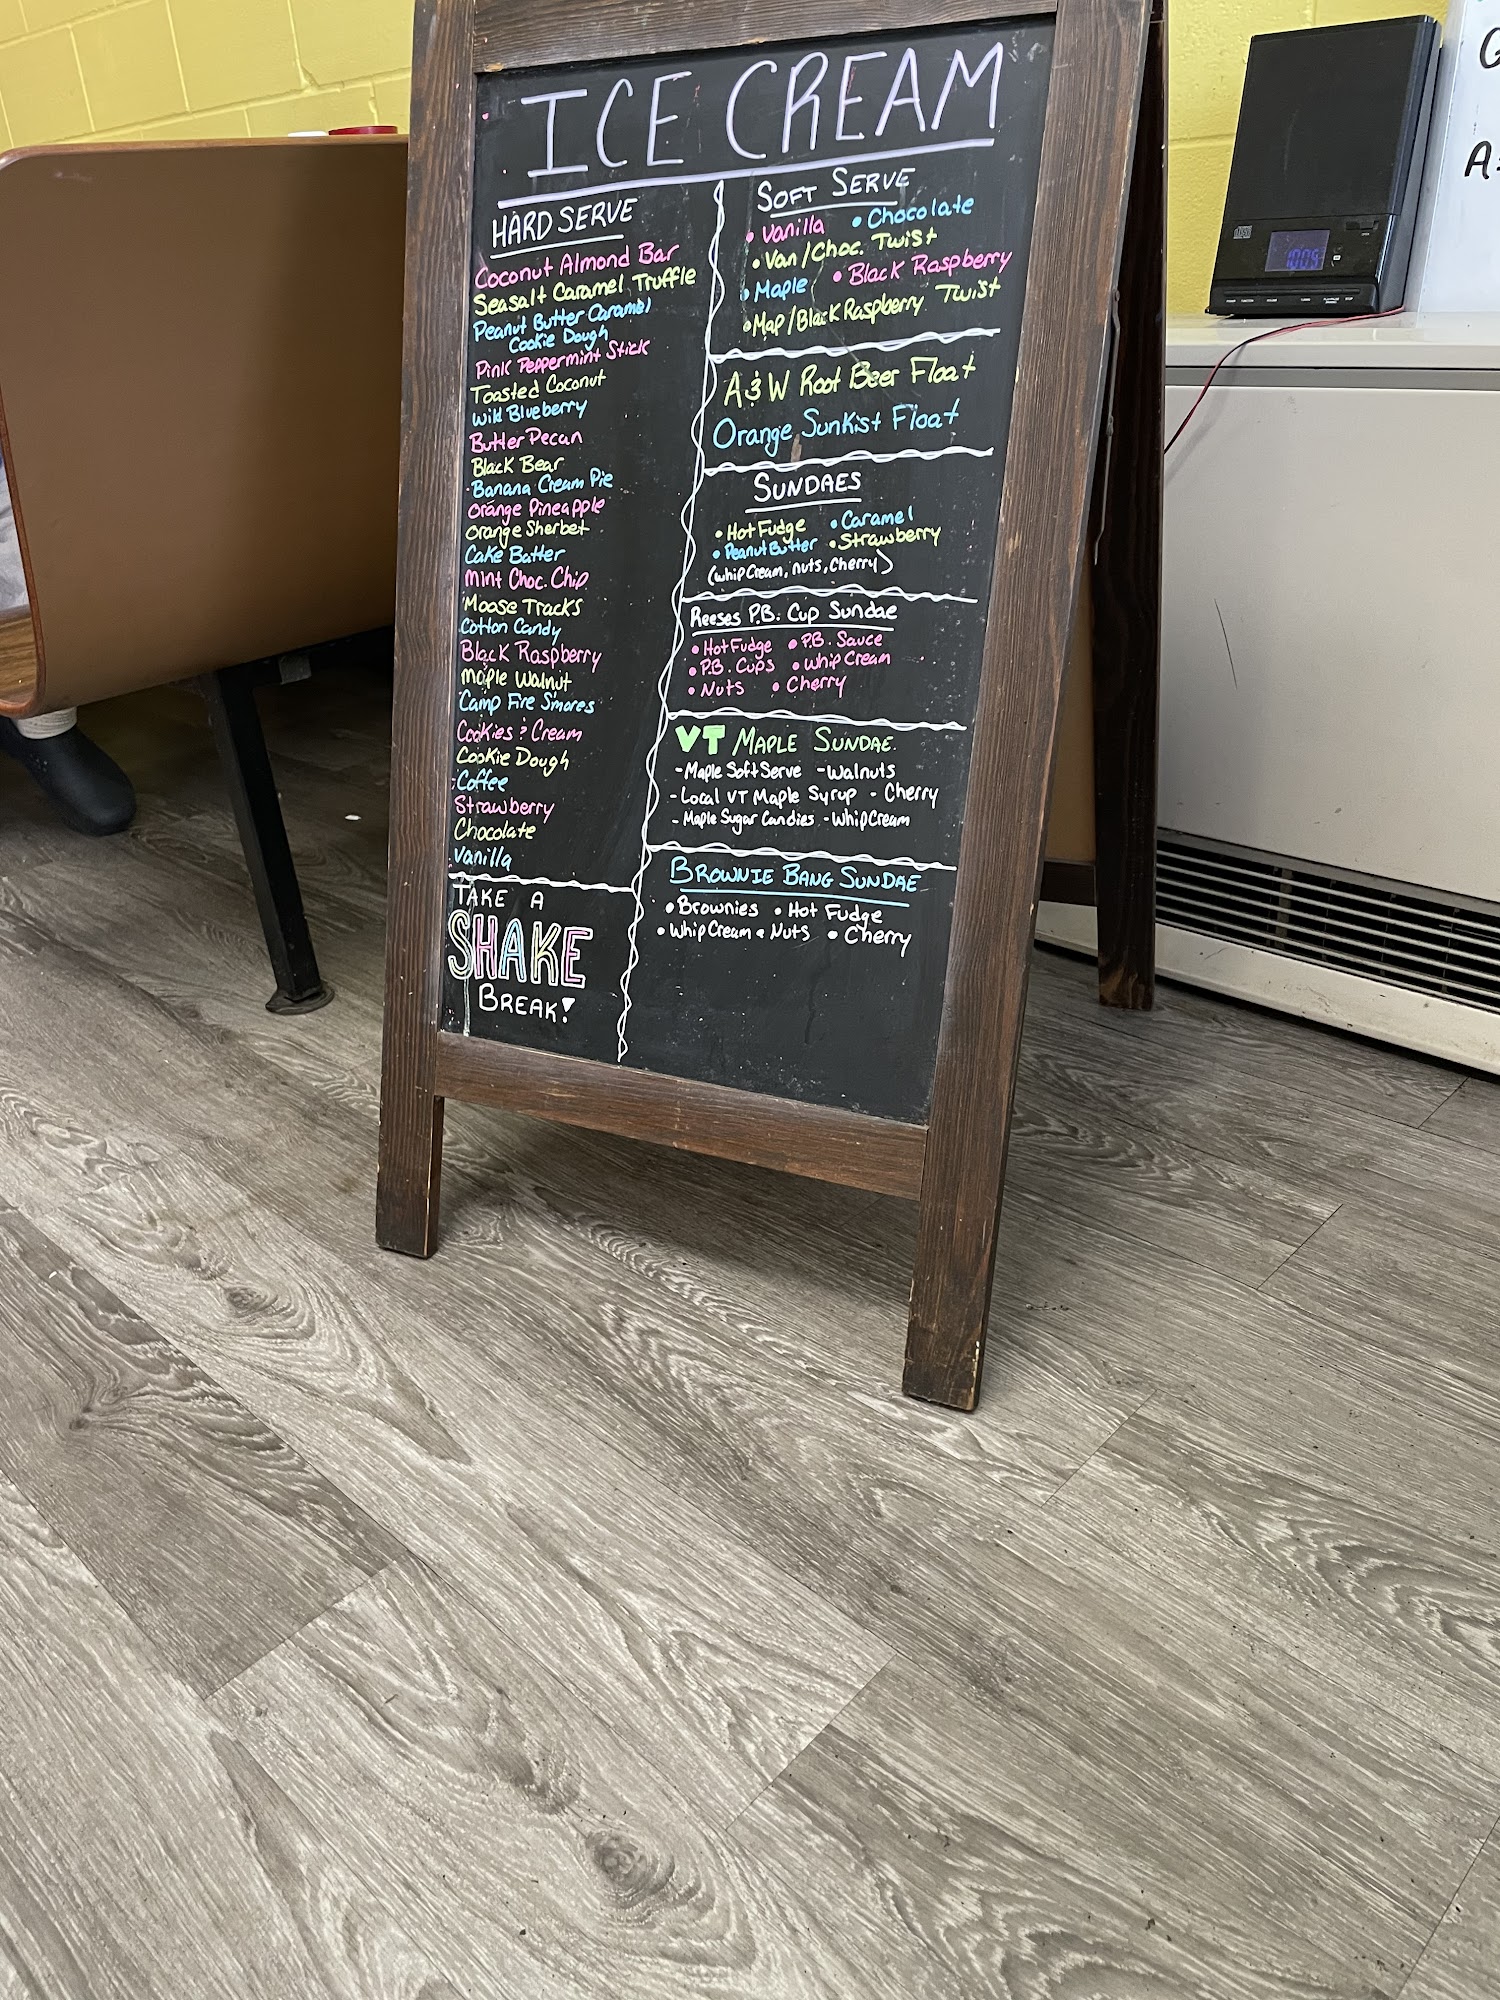 ICE CREAM
HARD SERVE
Coconut Almond Bar
Seasalt Caramel Truffle
Peanut Butter Caramel
Cookie Dough
Pink Peppermint Stick
Toasted Coconut
Wild Blueberry
Butter Pecan
Black Bear
Banana Cream Pie
Orange Pineapple
Orange Sherbet
Cake Batter
Mint Choc. Chip
Moose Tracks
Cotton Candy
Black Raspberry
Maple Walnut
Camp Fire S'mores
Cookies & Cream
Cookie Dough
Coffee
Strawberry
Chocolate
Vanilla
TAKE A
SHAKE
BREAK!
SOFT SERVE
• Vanilla • Chocolate
• Van/Choc. Twist
• Maple • Black Raspberry
• Map/Black Raspberry Twist
A&W Root Beer Float
Orange Sunkist Float
SUNDAES
• Hot Fudge • Caramel
• Peanut Butter • Strawberry
(whip Cream, nuts, cherry)
Reeses P.B. Cup Sundae
• Hot Fudge • P.B. Sauce
• P.B. Cups • Whip Cream
• Nuts • Cherry
VT MAPLE SUNDAE
- Maple Soft Serve - Walnuts
- Local VT Maple Syrup - Cherry
- Maple Sugar Candies - Whip Cream
BROWNIE BANG SUNDAE
• Brownies • Hot Fudge
• Whip Cream • Nuts • Cherry
G
A